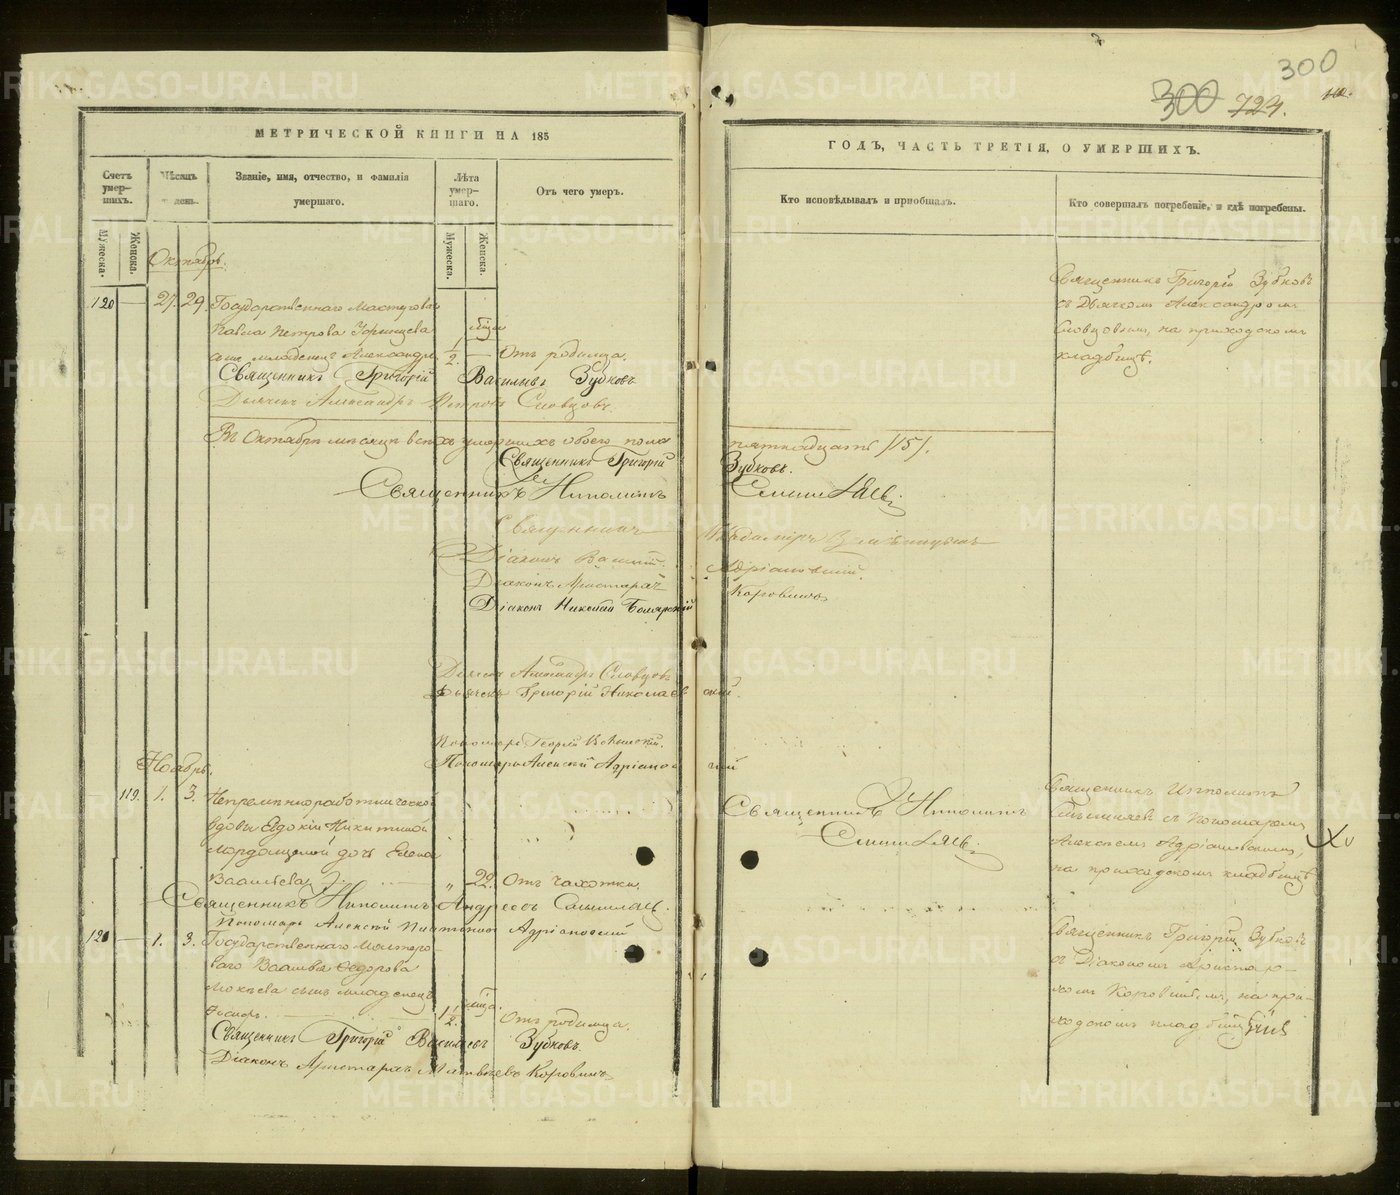 300
300 724.
МЕТРИЧЕСКОЙ КНИГИ НА 185
ГОДЪ, ЧАСТЬ ТРЕТІЯ, О УМЕРШИХЪ.
Счетъ умер-шихъ.
Мѣсяцъ и день.
Званіе, имя, отчество, и фамилія умершаго.
Лѣта умер-шаго.
Отъ чего умеръ.
Кто исповѣдывалъ и пріобщалъ.
Кто совершалъ погребеніе, и гдѣ погребены.
Мужеска.
Женска.
Мужеска.
Женска.
Октябрь.
120 — 27. 29. Государственнаго Мастероваго
Павла Петрова
сынъ младенецъ Александръ ½ — Отъ родимца.
Священникъ Григорій Васильевъ Зубковъ
Дьячекъ Александръ Петровъ Словцовъ.
Священникъ Григорій Зубковъ
съ Дьячкомъ Александромъ
Словцовымъ, на приходскомъ
кладбищѣ.
Въ Октябрѣ мѣсяцѣ всѣхъ умершихъ обоего пола пятнадцать /15/.
Священникъ Григорій Зубковъ.
Священникъ Ипполитъ
Священникъ Владиміръ
Діаконъ Василій Адріановскій.
Діаконъ Аристархъ Коровинъ
Діаконъ Николай Боярскій
Дьячекъ Александръ Словцовъ
Дьячекъ Григорій Николаевскій.
Пономарь Георгій
Пономарь Алексѣй Адріановскій
Ноябрь.
119. 1. 3. Непремѣннаго работника
вдовы Евдокіи Никитиной
дочь Елена
Васильева „ 22. Отъ чахотки.
Священникъ Ипполитъ Андреевъ
Пономарь Алексѣй Платоновъ Адріановскій
Священникъ Ипполитъ
Священникъ Ипполитъ
съ Пономаремъ
Алексѣемъ Адріановскимъ,
на приходскомъ кладбищѣ
121 — 1. 3. Государственнаго Мастеро-
ваго Василья Ѳедорова
Мокѣева сынъ младенецъ
1½ Отъ родимца.
Священникъ Григорій Васильевъ Зубковъ.
Діаконъ Аристархъ Матвѣевъ Коровинъ
Священникъ Григорій Зубковъ
съ Діакономъ Аристар-
хомъ Коровинымъ, на при-
ходскомъ кладбищѣ
METRIKI.GASO-URAL.RU